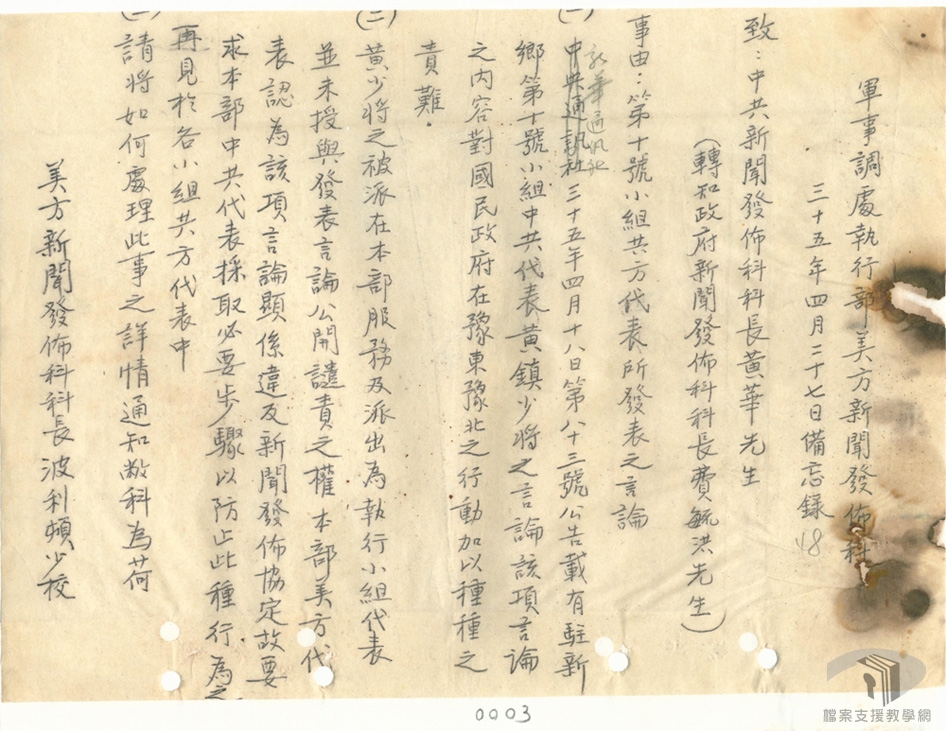 軍事調處執行部美方新聞發佈科
三十五年四月二十七日備忘錄
18
致：中共新聞發佈科科長黃華先生
（轉知政府新聞發佈科科長費毓洪先生）
事由：第十號小組共方代表所發表之言論
新華通訊社
(一) 中央通訊社三十五年四月十八日第八十三號公告載有駐新
鄉第十號小組中共代表黃鎮少將之言論該項言論
之內容對國民政府在豫東豫北之行動加以種種之
責難．
(二) 黃少將之被派在本部服務及派出為執行小組代表
並未授與發表言論公開譴責之權本部美方代
表認為該項言論顯係違反新聞發佈協定故要
求本部中共代表採取必要步驟以防止此種行為之
再見於各小組共方代表中
請將如何處理此事之詳情通知敝科為荷
美方新聞發佈科科長波利頓少校
0003
檔案支援教學網